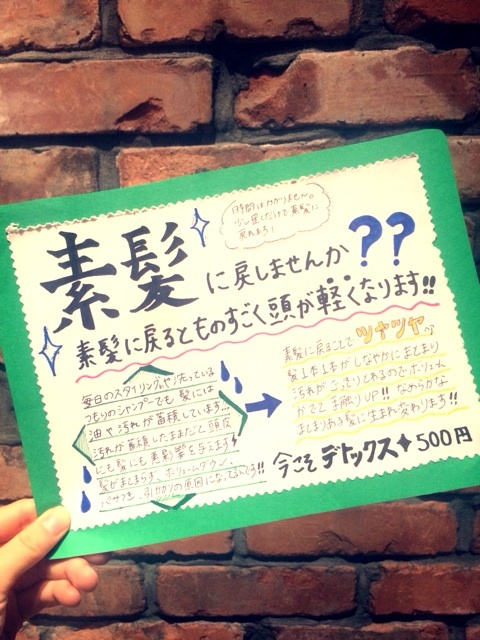 時間はかかりません。
少し置くだけで素髪に
戻れます!
素髪に戻しませんか??
素髪に戻るとものすごく頭が軽くなります!!
毎日のスタイリングや洗っている
つもりのシャンプーでも髪には
油や汚れが蓄積しています...
汚れが蓄積したままだと頭皮
にも髪にも悪影響を与えます
髪がまとまらず、ボリュームダウン、
パサつき、引っかかりの原因になってるんです!!
素髪に戻ることでツヤツヤ
髪1本1本がしなやかにまとまり
汚れがごっそりとれるのでボリューム
がでて手触りUP!! なめらかな
まとまりある髪に生まれ変わります!!
今こそデトックス 500円